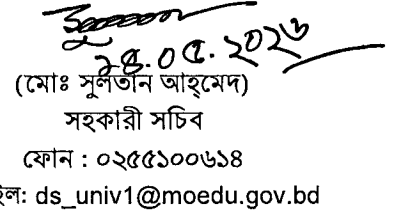 ২৪.০৫.২০২৩
(মোঃ সুলতান আহ্‌মেদ)
সহকারী সচিব
ফোন : ০২৫৫১০০৬১৪
ইল: ds_univ1@moedu.gov.bd